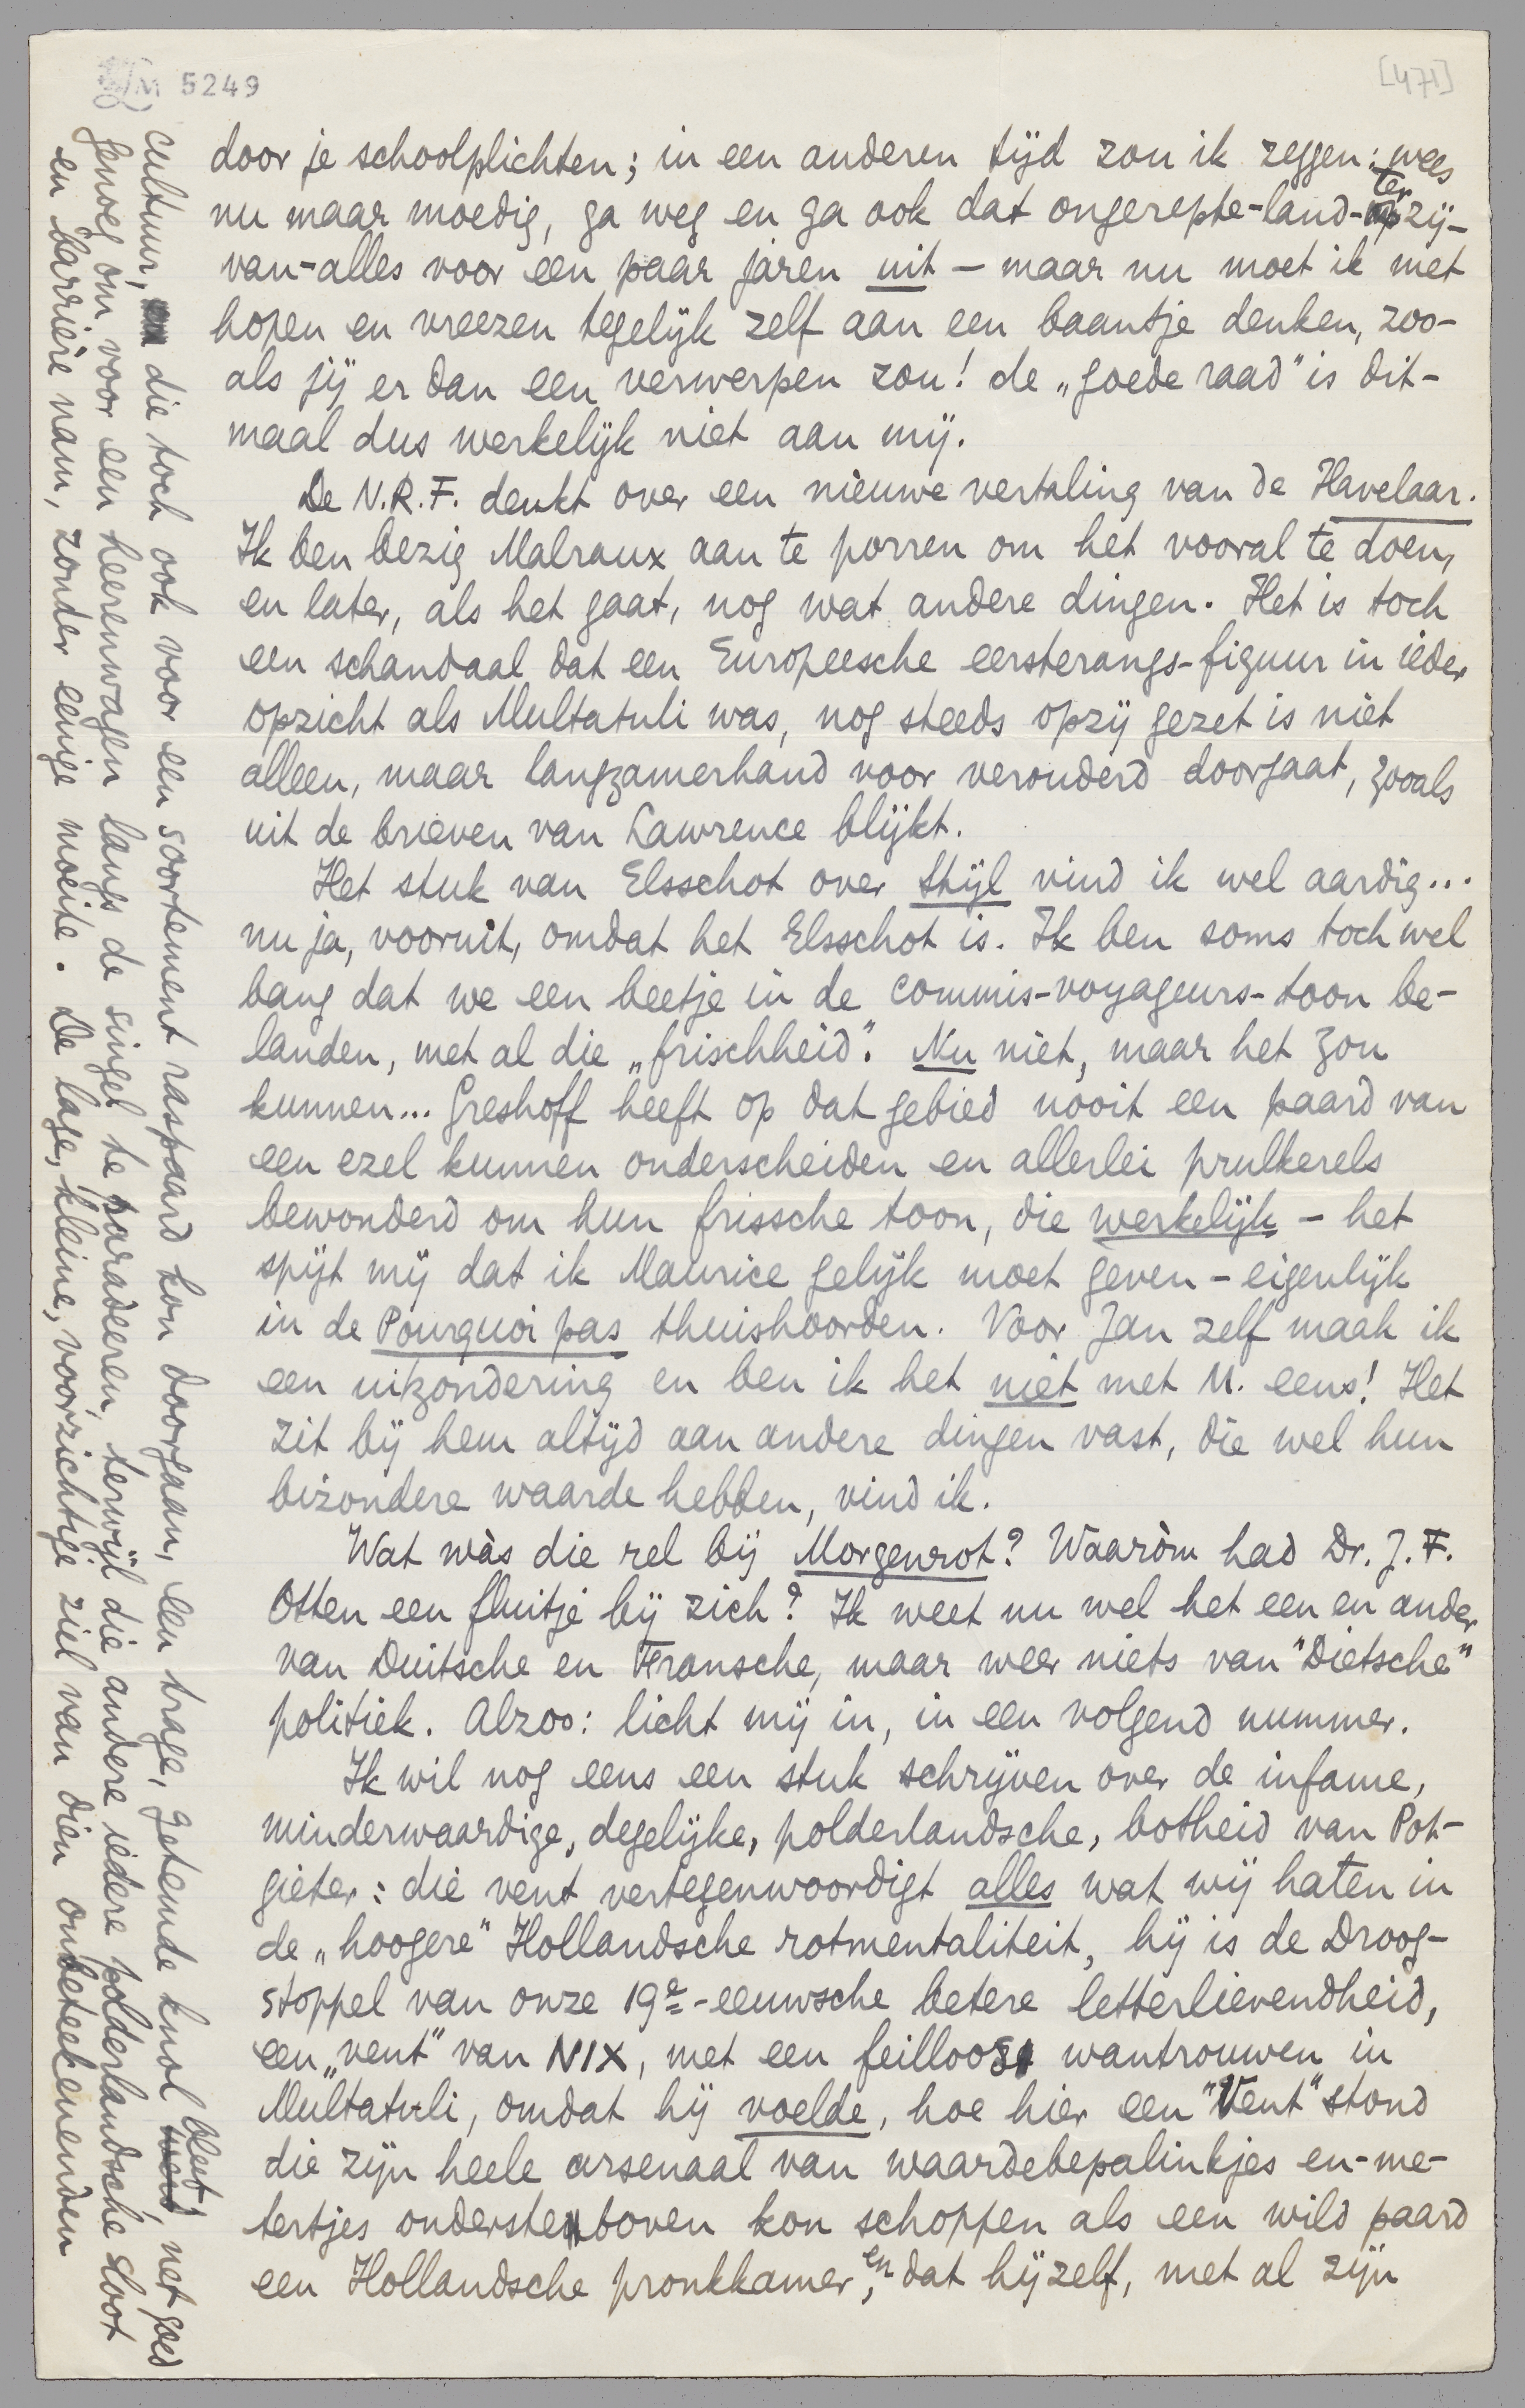 LM 5249
[471]
door je schoolplichten; in een anderen tijd zou ik zeggen: wees
nu maar moedig, ga weg en ga ook dat ongerepte-land-terzij-
van-alles voor een paar jaren uit – maar nu moet ik met
hopen en vreezen tegelijk zelf aan een baantje denken, zoo-
als jij er dan een verwerpen zou! de „goede raad" is dit-
maal dus werkelijk niet aan mij.
De N.R.F. denkt over een nieuwe vertaling van de Havelaar.
Ik ben bezig Malraux aan te porren om het vooral te doen,
en later, als het gaat, nog wat andere dingen. Het is toch
een schandaal dat een Europeesche eersterangs-figuur in ieder
opzicht als Multatuli was, nog steeds opzij gezet is niet
alleen, maar langzamerhand voor verouderd doorgaat, zooals
uit de brieven van Lawrence blijkt.
Het stuk van Elsschot over Stijl vind ik wel aardig...
nu ja, vooruit, omdat het Elsschot is. Ik ben soms toch wel
bang dat we een beetje in de commis-voyageurs-toon be-
landen, met al die „frischheid". Nu niet, maar het zou
kunnen... Greshoff heeft op dat gebied nooit een paard van
een ezel kunnen onderscheiden en allerlei prulkerels
bewonderd om hun frissche toon, die werkelijk – het
spijt mij dat ik Maurice gelijk moet geven – eigenlijk
in de Pourquoi pas thuishoorden. Voor Jan zelf maak ik
een uitzondering en ben ik het niet met M. eens! Het
zit bij hem altijd aan andere dingen vast, die wel hun
bizondere waarde hebben, vind ik.
Wat wàs die rel bij Morgenrot? Waaròm had Dr. J. F.
Otten een fluitje bij zich? Ik weet nu wel het een en ander
van Duitsche en Fransche, maar weer niets van "Dietsche"
politiek. Alzoo: licht mij in, in een volgend nummer.
Ik wil nog eens een stuk schrijven over de infame,
minderwaardige, degelijke, polderlandsche, botheid van Pot-
gieter: die vent vertegenwoordigt alles wat wij haten in
de „hoogere" Hollandsche rotmentaliteit, hij is de Droog-
stoppel van onze 19e-eeuwsche betere letterlievendheid,
een „vent" van NIX, met een feilloos wantrouwen in
Multatuli, omdat hij voelde, hoe hier een "Vent" stond
die zijn heele arsenaal van waardebepalinkjes en-me-
tertjes ondersteboven kon schoppen als een wild paard
een Hollandsche pronkkamer, en dat hijzelf, met al zijn
cultuur, die toch ook voor een soortement raspaard kon doorgaan, een trage, getemde knol bleef, net goed
genoeg om voor een heerenwagen langs de singel te paradeeren, terwijl die andere iedere polderlandsche sloot
en barrière nam, zonder eenige moeite. De lage, kleine, voorzichtige ziel van dien onbeteekenenden